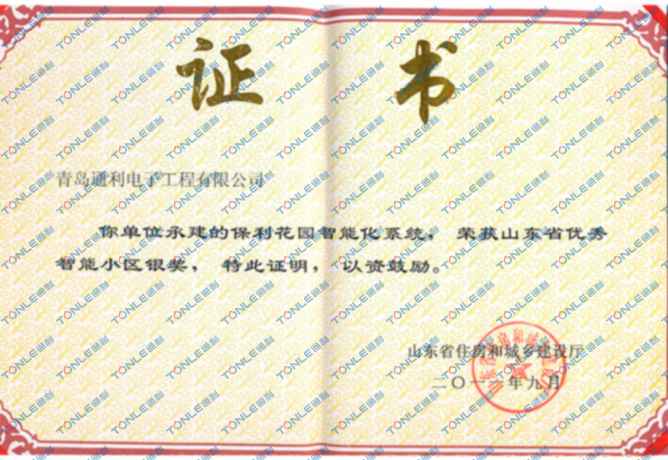 证书
青岛通利电子工程有限公司
你单位承建的保利花园智能化系统， 荣获山东省优秀
智能小区银奖， 特此证明， 以资鼓励。
山东省住房和城乡建设厅
年九月
TONLE通利